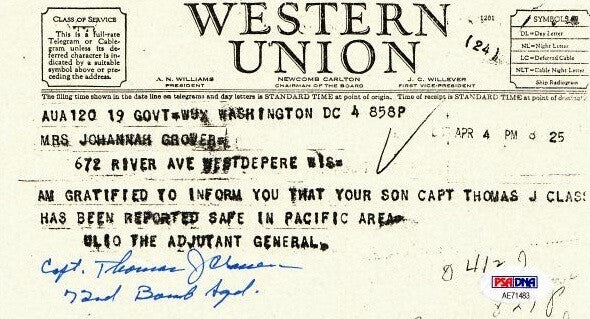 CLASS OF SERVICE
This is a full-rate
Telegram or Cable-
gram unless its de-
ferred character is in-
dicated by a suitable
symbol above or pre-
ceding the address.
WESTERN
UNION
1201
(24)
A. N. WILLIAMS
PRESIDENT
NEWCOMB CARLTON
CHAIRMAN OF THE BOARD
J. C. WILLEVER
FIRST VICE-PRESIDENT
SYMBOLS
DL=Day Letter
NL=Night Letter
LC=Deferred Cable
NLT=Cable Night Letter
Ship Radiogram
The filing time shown in the date line on telegrams and day letters is STANDARD TIME at point of origin. Time of receipt is STANDARD TIME at point of destination
AUA120 19 GOVT=WUX WASHINGTON DC 4 858P
MRS JOHANNAH GROWER=
APR 4 PM 8 25
672 RIVER AVE WESTDEPERE WIS=
AM GRATIFIED TO INFORM YOU THAT YOUR SON CAPT THOMAS J CLASS
HAS BEEN REPORTED SAFE IN PACIFIC AREA=
ULIO THE ADJUTANT GENERAL.
Capt. Thomas J Classen
72nd Bomb Sqd.
PSA DNA
AE71483